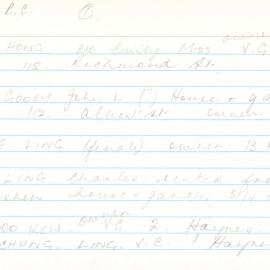 C.C. ①
HONG Emily Miss owner V.G.
115. Richmond St
GOOEY John L (?) House & ga
112. Albert St owner
E. LING (female) owner 13 H
LING Charles rented fro
house & garden 31/
OO KEW owner VG 2. Haynes
CHUNG LING. V.C. Hayne